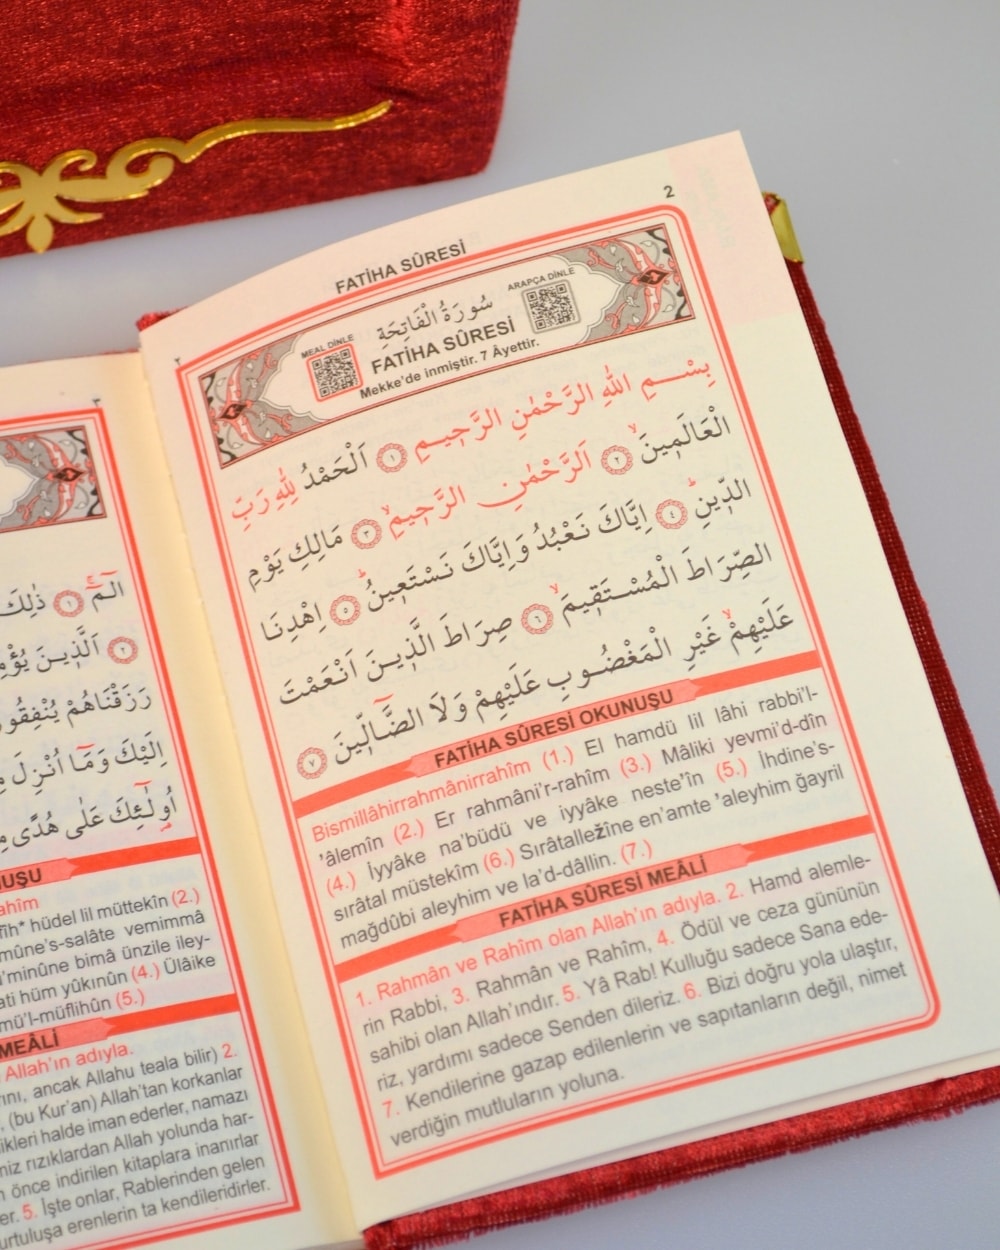 FATİHA SÛRESİ
2
٢
MEAL DİNLE
سُورَةُ الْفَاتِحَةِ
ARAPÇA DİNLE
FATİHA SÛRESİ
Mekke'de inmiştir. 7 Âyettir.
بِسْمِ اللهِ الرَّحْمٰنِ الرَّحِيمِ ﴿١﴾ اَلْحَمْدُ لِلّٰهِ رَبِّ
الْعَالَمِينَۙ ﴿٢﴾ اَلرَّحْمٰنِ الرَّحِيمِۙ ﴿٣﴾ مَالِكِ يَوْمِ
الدِّينِۜ ﴿٤﴾ اِيَّاكَ نَعْبُدُ وَاِيَّاكَ نَسْتَعِينُۜ ﴿٥﴾ اِهْدِنَا
الصِّرَاطَ الْمُسْتَقِيمَۙ ﴿٦﴾ صِرَاطَ الَّذِينَ اَنْعَمْتَ
عَلَيْهِمْۙ غَيْرِ الْمَغْضُوبِ عَلَيْهِمْ وَلَا الضَّٓالِّينَ ﴿٧﴾
FATİHA SÛRESİ OKUNUŞU
Bismillâhirrahmânirrahîm (1.) El hamdü lil lâhi rabbi'l-
'âlemîn (2.) Er rahmâni'r-rahîm (3.) Mâliki yevmi'd-dîn
(4.) İyyâke na'büdü ve iyyâke neste'în (5.) İhdine's-
sırâtal müstekîm (6.) Sırâtallezîne en'amte 'aleyhim ğayril
mağdûbi aleyhim ve la'd-dâllin. (7.)
FATİHA SÛRESİ MEÂLİ
1. Rahmân ve Rahîm olan Allah'ın adıyla. 2. Hamd alemle-
rin Rabbi, 3. Rahmân ve Rahîm, 4. Ödül ve ceza gününün
sahibi olan Allah'ındır. 5. Yâ Rab! Kulluğu sadece Sana ede-
riz, yardımı sadece Senden dileriz. 6. Bizi doğru yola ulaştır,
7. Kendilerine gazap edilenlerin ve sapıtanların değil, nimet
verdiğin mutluların yoluna.
٣
الٓمٓۚ ﴿١﴾ ذٰلِكَ
﴿٢﴾ اَلَّذِينَ
رَزَقْنَاهُمْ يُنْفِقُونَ
اِلَيْكَ وَمَٓا اُنْزِلَ
اُو۬لٰٓئِكَ عَلٰى هُدًى
hüdel lil müttekîn (2.)
mûne's-salâte vemimmâ
minûne bimâ ünzile iley-
hüm yûkınûn (4.) Ülâike
mü'l-müflihûn (5.)
MEÂLİ
Allah'ın adıyla.
ancak Allahu teala bilir) 2.
(bu Kur'an) Allah'tan korkanlar
halde iman ederler, namazı
rızıklardan Allah yolunda har-
önce indirilen kitaplara inanırlar
5. İşte onlar, Rablerinden gelen
erenlerin ta kendileridirler.